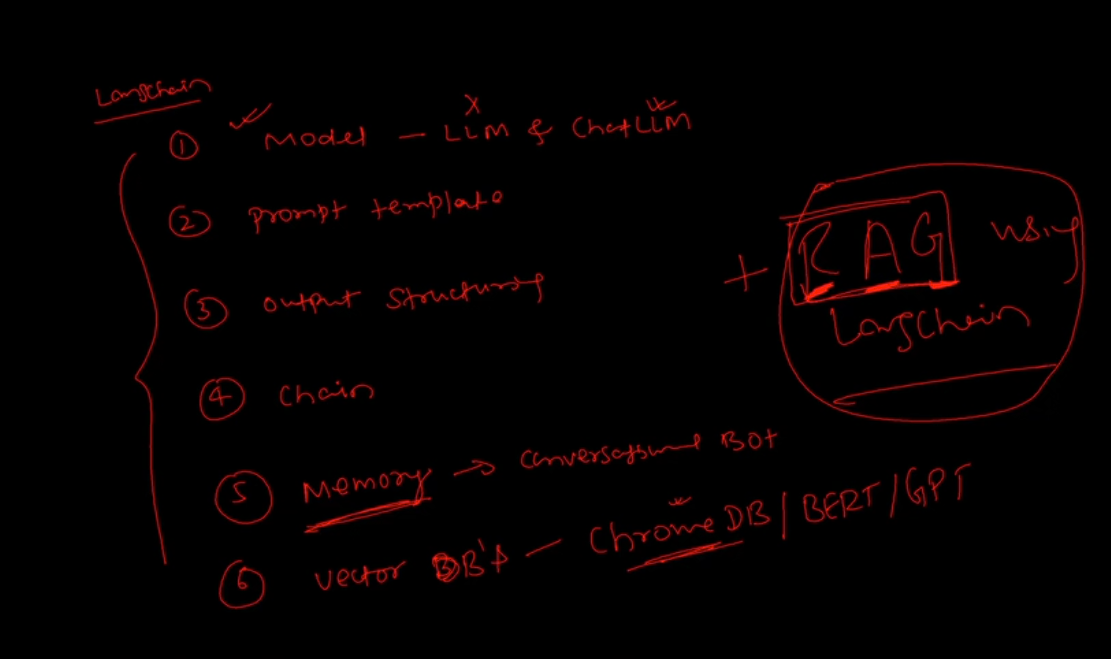 Langchain
① Model - LLM & ChatLLM
② Prompt template
③ output structuring
④ chain
⑤ Memory → conversational BOt
⑥ vector DB's - Chrome DB / BERT / GPT
+ RAG using
Langchain